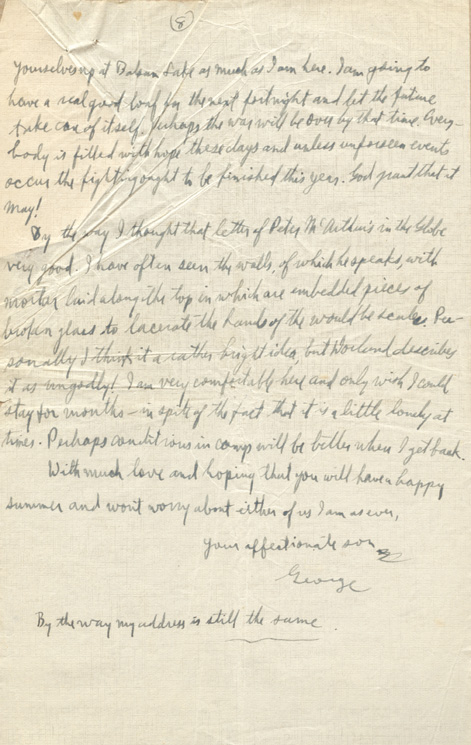 8
yourselves at Balsam Lake as much as I am here. I am going to
have a real good loaf for the next fortnight and let the future
take care of itself. Perhaps the war will be over by that time. Every-
body is filled with hope these days and unless unforseen events
occur the fighting ought to be finished this year. God grant that it
may!
By the way I thought that letter of Peter McArthur's in the Globe
very good. I have often seen the walls, of which he speaks, with
mortar laid along the top in which are embedded pieces of
broken glass to lacerate the hands of the would be scaler. Per-
sonally I think it a rather bright idea, but describes
it as ungodly! I am very comfortable here and only wish I could
stay for months - in spite of the fact that it is a little lonely at
times. Perhaps conditions in camp will be better when I get back.
With much love and hoping that you will have a happy
summer and wont worry about either of us I am as ever,
Your affectionate son
George
By the way my address is still the same.